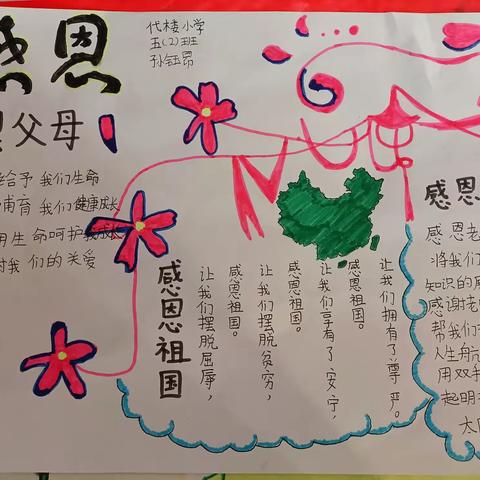 感恩
代楼小学
五(2)班
孙钰昂
父母
给予我们生命
哺育我们健康成长
用生命呵护我成长
对我们的关爱
感恩祖国
让我们摆脱屈辱，
感恩祖国。
让我们摆脱贫穷，
感恩祖国。
让我们享有了安宁，
感恩祖国。
让我们拥有了尊严。
感恩
感恩老
将我们
知识的
感谢老
帮我们
人生航
用双手
起明
太